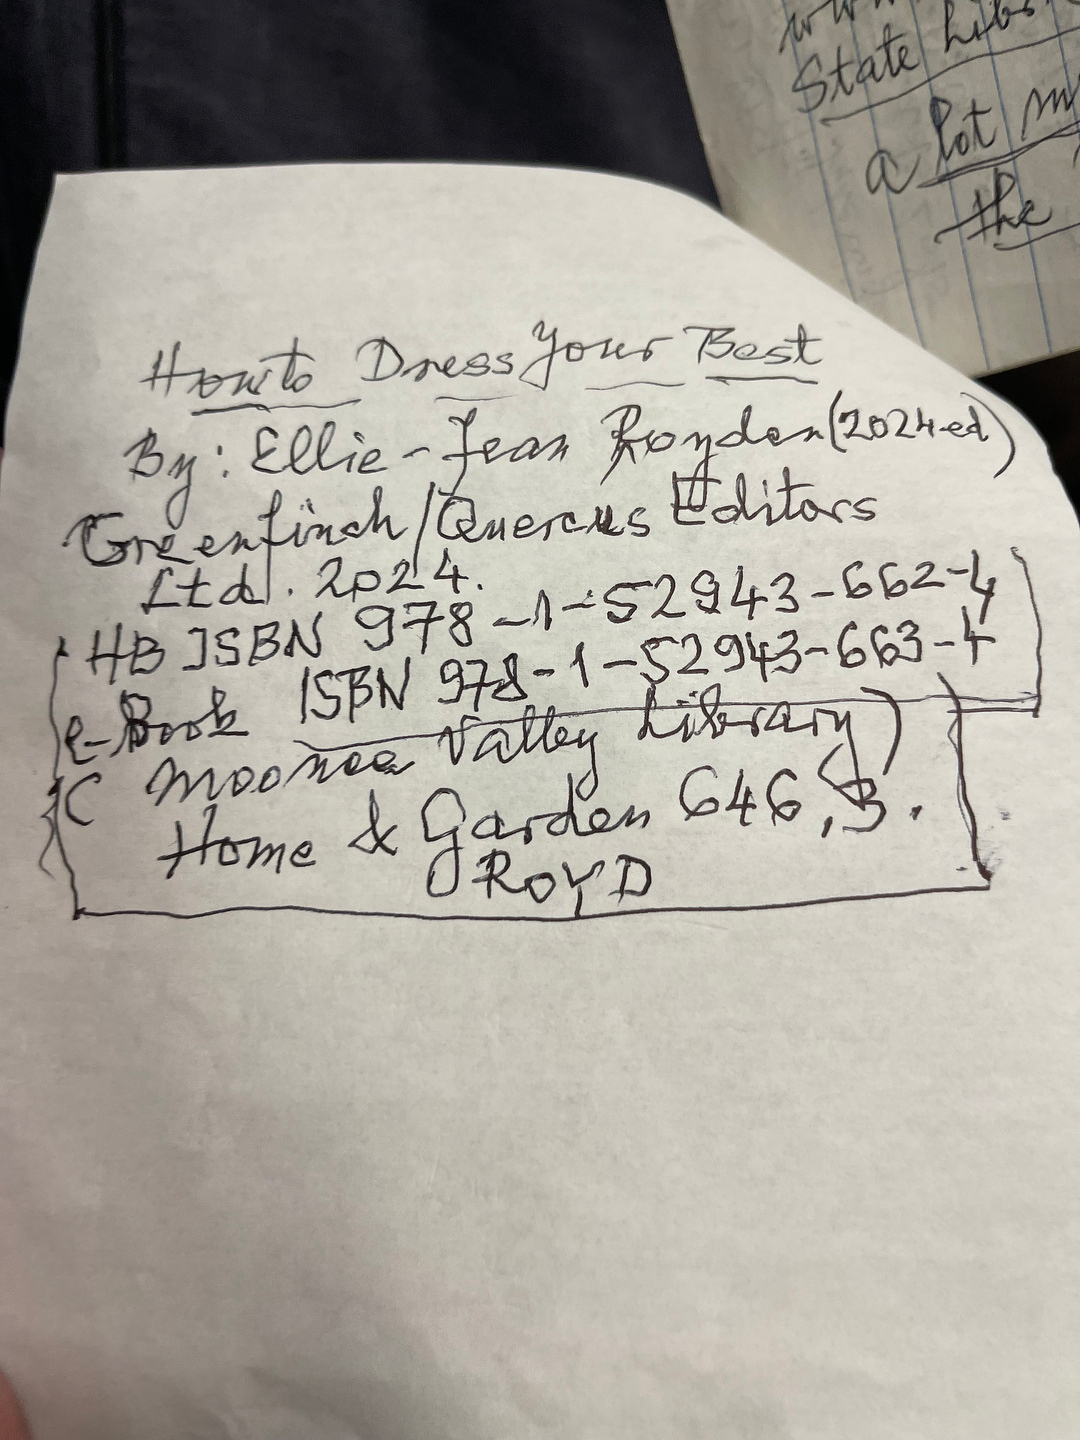 State Libr
a lot m
the
How to Dress Your Best
By: Ellie-Jean Royden (2024-ed)
Greenfinch/Quercus Editors
Ltd. 2024.
HB ISBN 978-1-52943-662-4
e-Book ISBN 978-1-52943-663-4
( Moonee Valley Library)
Home & Garden 646,3.
ROYD